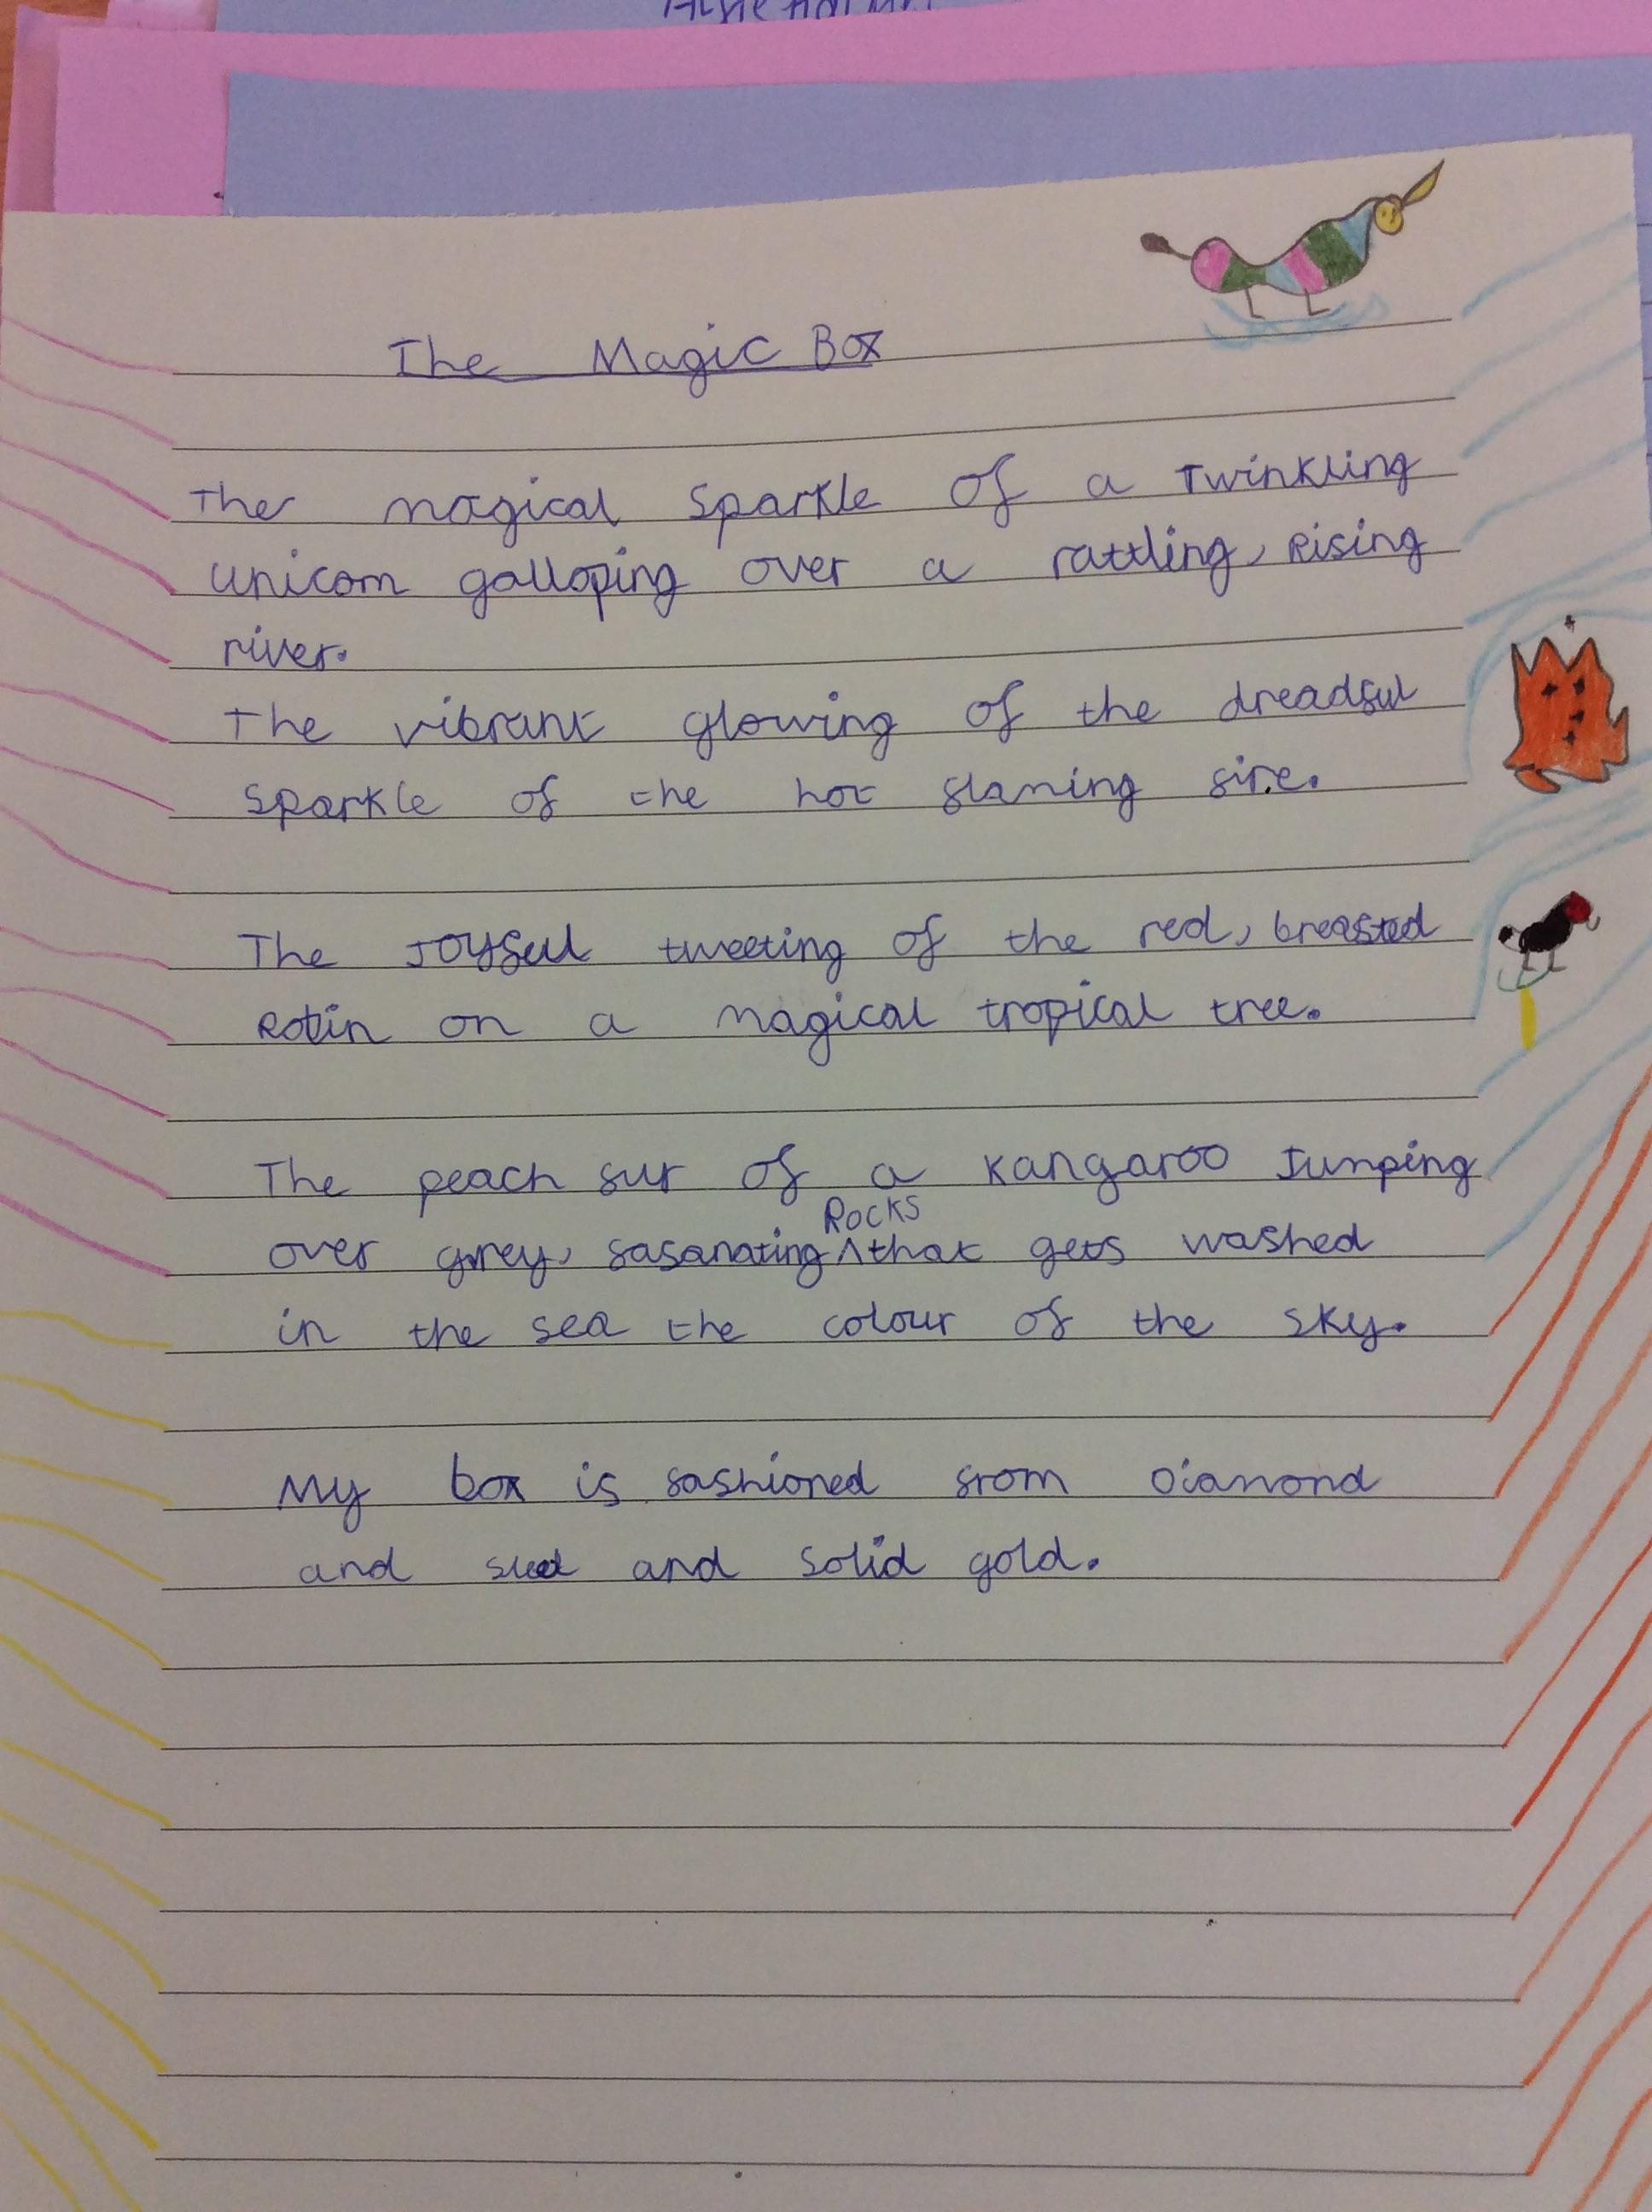 The Magic Box
The magical sparkle of a Twinkling
unicorn galloping over a rattling, Rising
river.
The vibrant glowing of the dreadful
sparkle of the hot flaming fire.
The Joyful tweeting of the red, breasted
Robin on a magical tropical tree.
The peach fur of a kangaroo Jumping
Rocks
over grey, fasanating ^ that gets washed
in the sea the colour of the sky.
My box is fashioned from Diamond
and and solid gold.